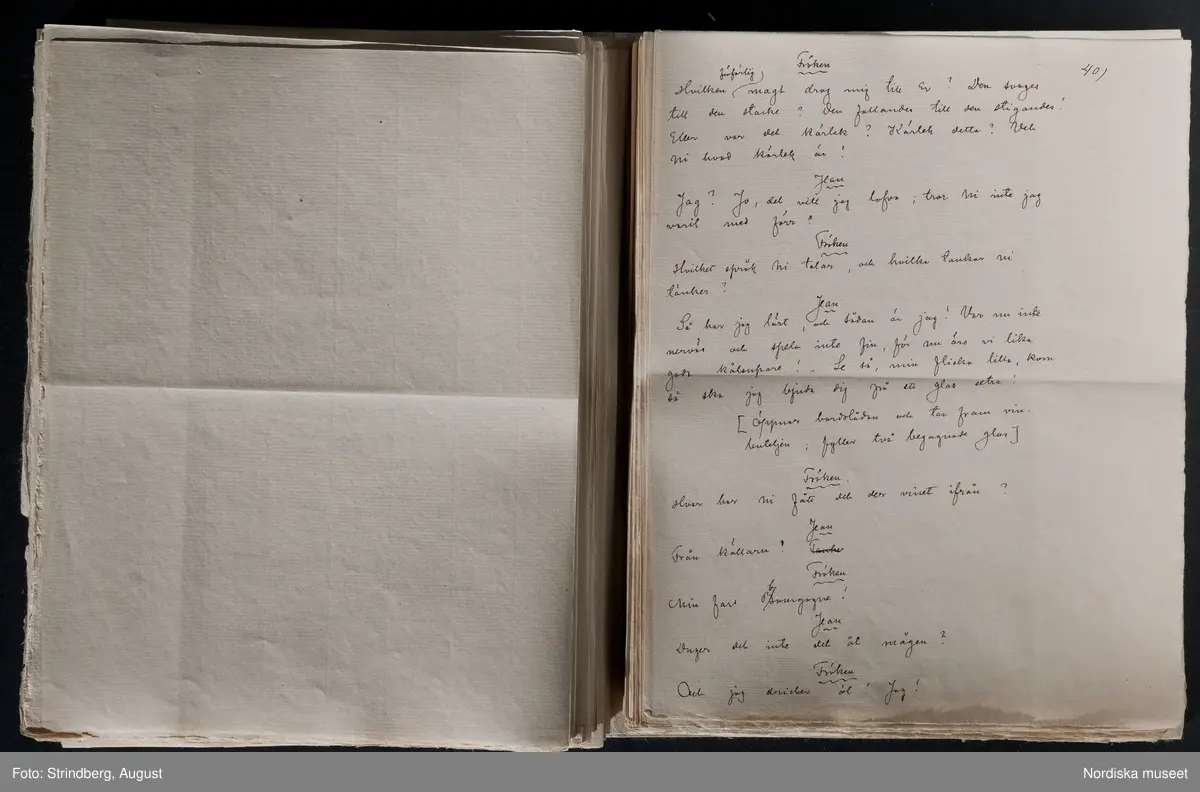 40)
Fröken
förfärlig
Hvilken magt drog mig till Er? Den svages
till den starke? Den fallandes till den stigandes!
Eller var det kärlek? Kärlek detta? Vet
Ni hvad kärlek är!
Jean
Jag? Jo, det vill jag lofva; tror Ni inte jag
varit med förr?
Fröken
Hvilket språk Ni talar, och hvilka tankar ni
tänker?
Jean
Så har jag lärt, och sådan är jag! Var nu inte
nervös och spela inte fin, för nu äro vi lika
goda kålsupare! – Se så, min flicka lilla, kom
så ska jag bjuda dig på ett glas extra!
[Öppnar bordslådan och tar fram vin-
buteljen; fyller två begagnade glas]
Fröken.
Hvar har Ni fått det der vinet ifrån?
Jean
Från källarn!
Fröken
Min fars bourgogne!
Jean
Duger det inte det åt mågen?
Fröken
Och jag dricker öl! Jag!
Foto: Strindberg, August
Nordiska museet